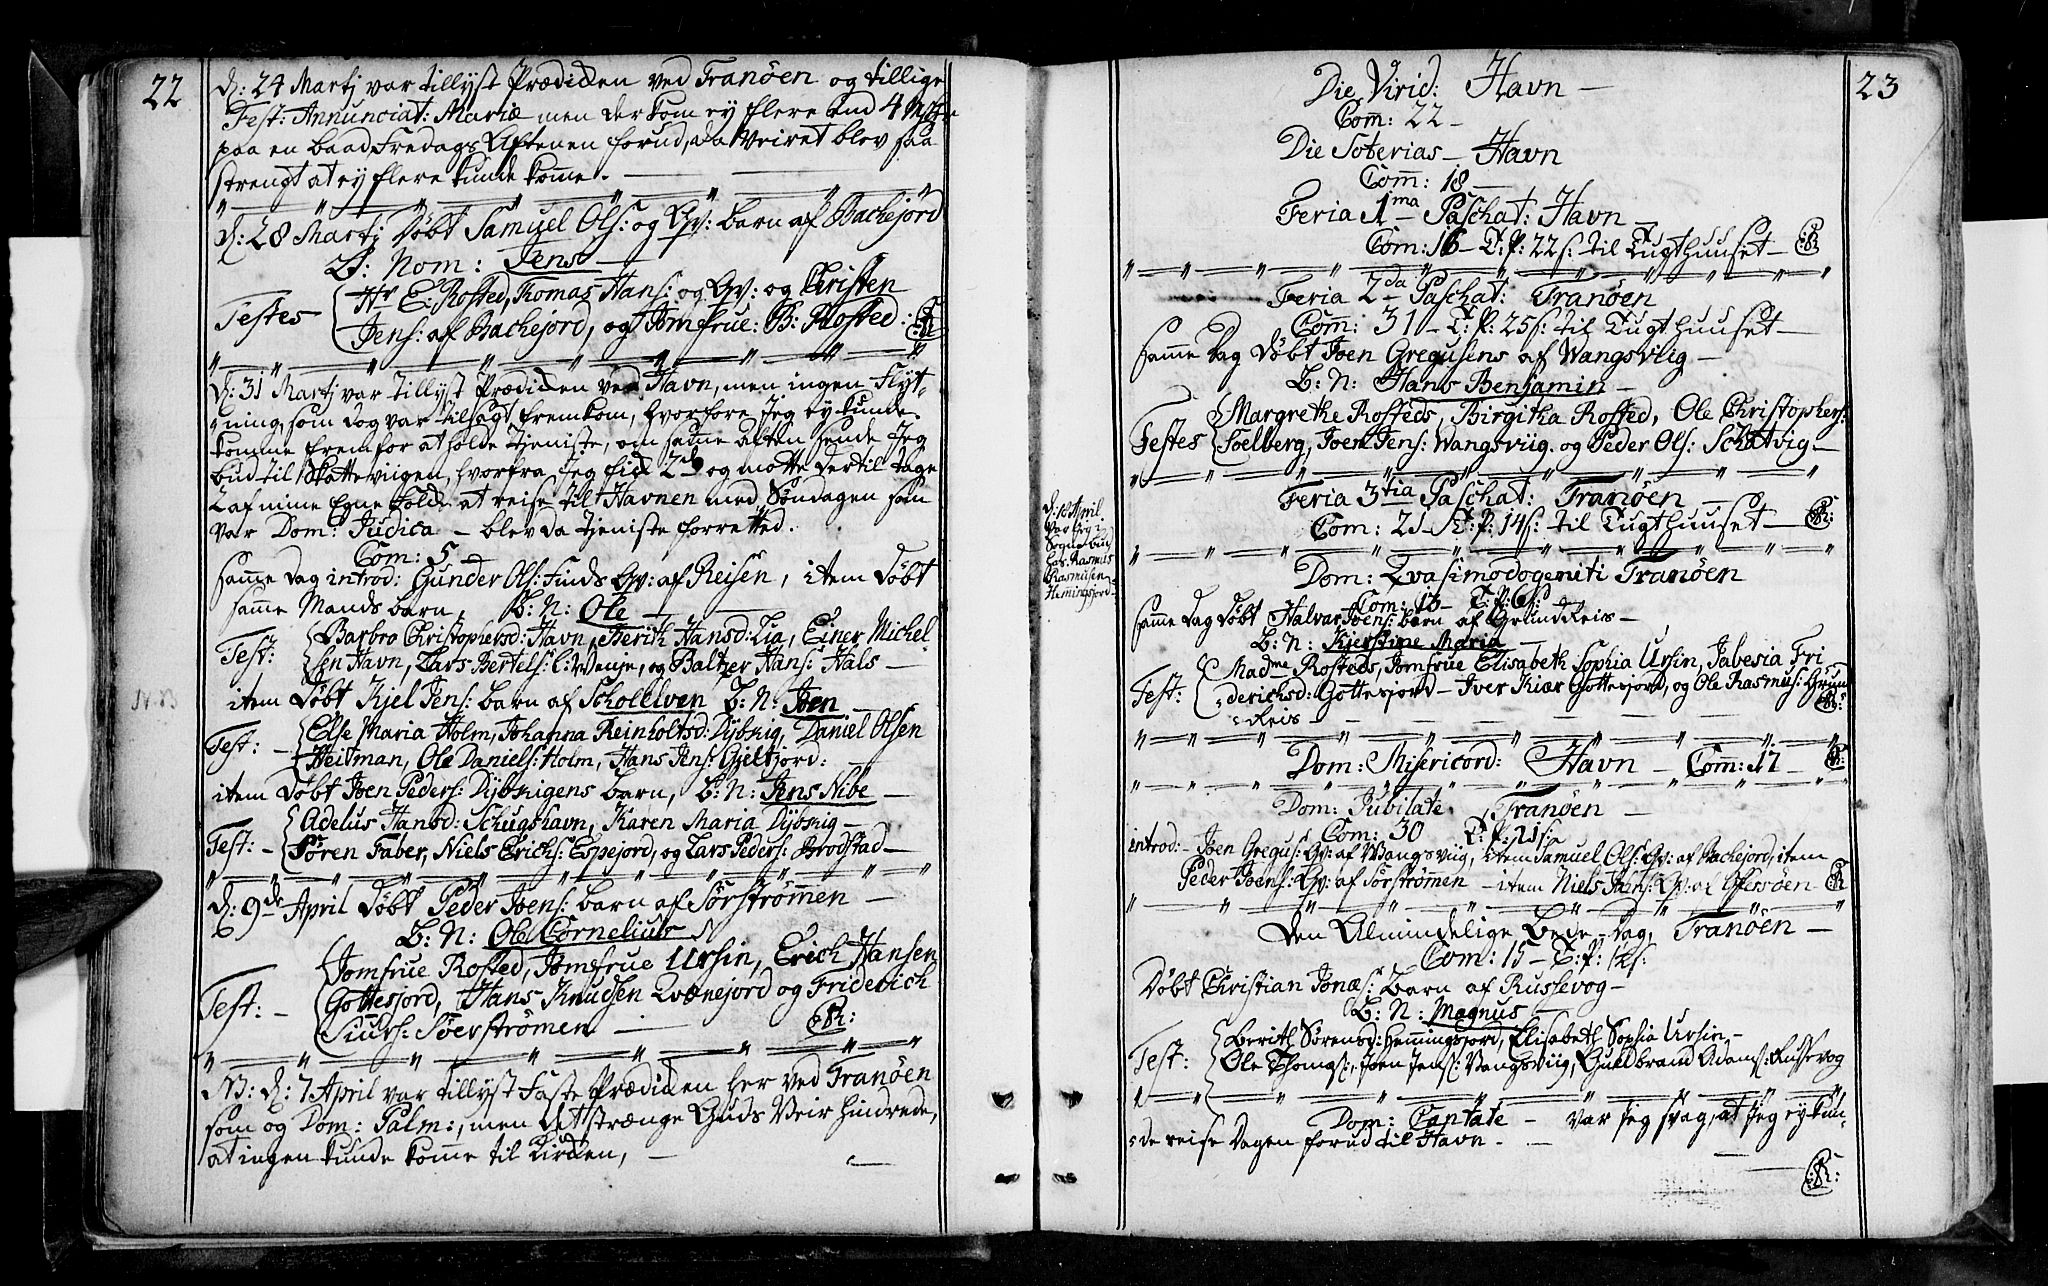 22
d: 24 Martj var tillyst Prædicken ved Tranöen og tillige
Fest: Annunciat: Mariæ men der kom ey flere end 4
paa en baad, Fredags Aftenen forud, da Veiret blev saa
strengt at ey flere kunde kom̄e.
d: 28 Martj Döbt Samuel Ols: og Hv: barn af Bachejord
B: Nom: Jens
Testes Hr E: Rosted, Tomas Hans: og Hv: og Christen
Jens: af Bachejord, og Jomfrue: B: Rosted:
d: 31 Martj var tillyst Prædicken ved Havn, men ingen Flyt-
ning, som dog var tilsagt fremkom, hvorfore jeg ey kunde
komme frem for at holde tjeniste, om samme aften sende jeg
bud til Skatteviigen, hvorfra jeg fick 2de og motte dertil tage
2 af mine Egne Folck at reise til Havnen med Söndagen som
var Dom: Judica – blev da tjeniste forretted.
Com: 5
sam̄e Dag introd: Gunder Ols: Finds Hv: af Reisen, item Döbt
sam̄e Mands barn, B: N: Ole
Test: Barbro Christophersd: Havn, Berith Hansd: Lia, Einer Michel
sen Havn, Lars Bertels: l: Wenje, og Baltzer Hans: Hals
item Döbt Kjel Jens: barn af Schollelven B: N: Joen
Test: Else Maria Holm, Johanna Reinholtsd: Dÿbvig, Daniel Olsen
Heitman, Ole Daniels: Holm, Hans Jens: Gjeltfjord:
item Döbt Joen Peders: Dÿbvigens barn, B: N: Jens Nibe
Test: Adelus Hansd: Schugshavn, Karen Maria Dÿbvig
Sören Faber, Niels Erichs: Espejord, og Lars Peders: Brodstad
d: 9de April Döbt Peder Joens: barn af Sörströmmen
B: N: Ole Cornelius
Test: Jomfrue Rosted, Jomfrue Ursin, Erich Hansen
Gottesjord, Hans Knudsen Qvænejord og Friderich
Siurs: Söerströmen
NB: d: 7 April var tillyst Faste Prædicken her ved Tranöen
som og Dom: Palm:, men det strænge Guds Veir hindrede,
at ingen kunde kom̄e til Kircken,
23
Die Virid: Havn
Com: 22
Die Soterias – Havn
Com̄: 18
Feria 1ma Paschat: Havn
Com: 16 – T: P: 22 s: til Tugthuuset
Feria 2da Paschat: Tranöen
Com̄: 31 – T: P: 25 s: til Tugthuuset
sam̄e Dag Döbt Joen Gregusens af Wangsviig
B: N: Hans Benjamin
Testes Margrethe Rosteds, Birgitha Rosted, Ole Christophers:
Foelberg, Joen Jens: Wangsviig. og Peder Ols: Schatvig
Feria 3tia Paschat: Tranöen
Com: 21 – T: P: 14 s: til Tugthuuset
d: 18 April
var jeg i
Sogne bud
hos Rasmus
Rasmusen
Hemingsjord
Dom: Qvasimodogeniti Tranöen
Com: 13 – T: P: 6 s:
sam̄e Dag Döbt Halvar Joens: barn af GrundReis
B: N: Kjerstine Maria
Test: Madme Rosteds, Jomfrue Elisabeth Sophia Ursin, Jabesia Fri
derichsd: Gottesjord – Iver Kiær Gottesjord, og Ole Rasmus: Grun
Reis
Dom: Misericord: Havn – Com̄: 17
Dom: Jubilate Tranöen
Com: 30 T: P: 21 s:
introd: Joen Gregus: Hv: af Wangsviig, item Samuel Ols: Hv: af Bachejord, item
Peder Joens: Hv: af Sörströmmen – item Niels Jens: Hv: af
Den Almindelige Bede-Dag, Tranöen
Com: 15 – T: P: 12 s:
Döbt Christian Jonæs: Barn af Russevog
B: N: Magnus
Test: Berith Sörensd: Hemmingsjord, Elisabeth Sophia Ursin
Ole Thoms:, Joen Jens: Vangsviig, Guldbrand Adams: Russevog
Dom: Cantate – var jeg svag, at jeg ey kun-
de reise Dagen forud til Havn